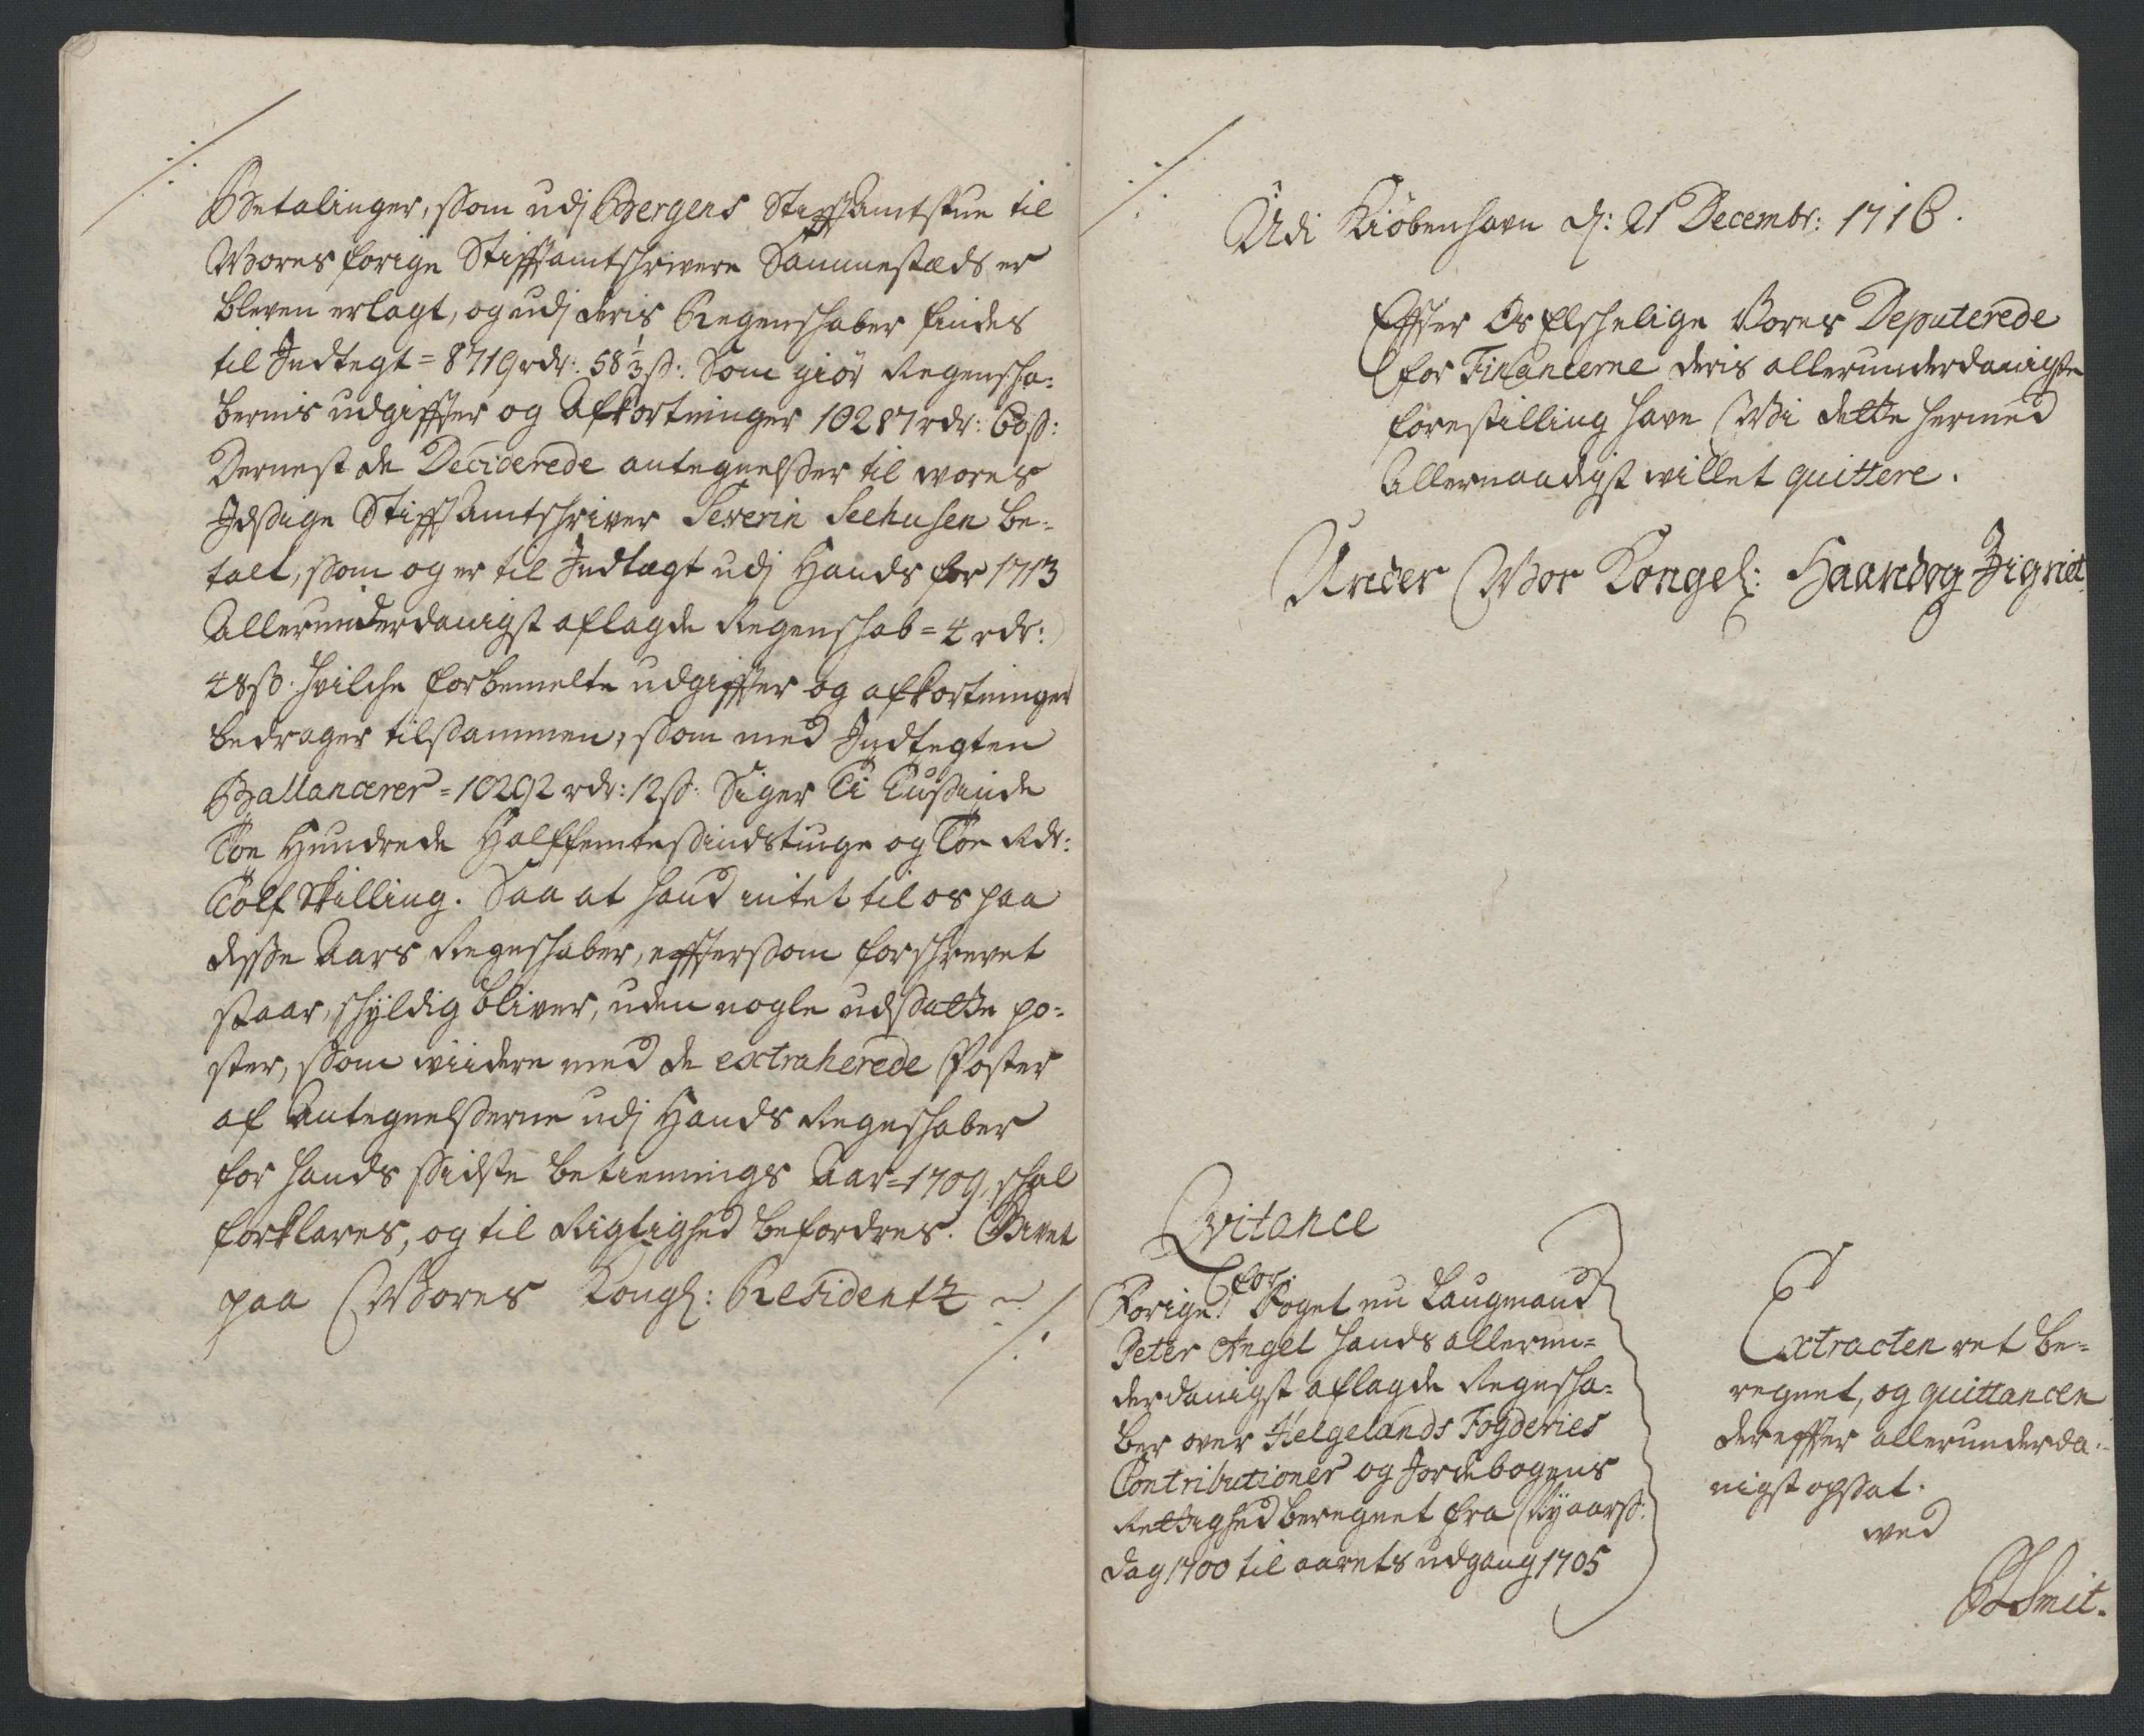 Betalinger, som udj Bergens StiffsAmtstue til
Wores forige Stiffsamtschrivere Sammestæds er
bleven erlagt, og udj deris Regenschaber findes
til Indtegt = 8719 rdr: 58 1/3 ß: Som giør Regenscha-
bernis udgiffter og Afkortninger 10287 rdr: 60 ß:
Dernest de Deciderede antegnelsser til wores
Jdßige StiffsAmtschriver Severin Seehusen be-
talt, som og er til Indtagt udj Hands for 1713
Allerunderdanigst aflagde Regenschab = 4 rdr:
48 ß. hvilche forbemelte udgiffter og afkortninger
bedrager tilsammen, som med Indtegten
Ballancerer = 10292 rdr: 12 ß: Siger Ti Tusinde
Toe Hundrede Halffemtesindstiuge og Toe Rdr:
Tolf Skilling. Saa at hand intet til os paa
disse Aars Regnschaber, efftersom forschrevet
staar, schyldig bliver, uden nogle udsatte po-
ster, som wiidere med de extraherede Poster
af Antegnelserne udj Hands Regnschaber
for hands sidste betiennings Aar = 1709, schal
forklares, og til Rigtighed befordres. Givet
paa Wores Kongl: Residentz
Udi Kiøbenhavn d: 21 Decembr: 1716.
Effter Os Elschelige Vores Deputerede
for Financerne deris allerunderdanigste
forestilling have Wi dette hermed
Allernaadigst willet quittere.
Under Wor Kongel: Haand og Zignet
Qvitance
for
Forige Foget nu Laugmand
Peter Angel hands allerun-
derdanigst aflagde Regnscha-
ber over Helgelands Fogderies
Contributioner og Jordebogens
Rettighed beregnet fra Nyaars-
dag 1700 til aarets udgang 1705
Extracten ret be-
regnet, og quittancen
dereffter allerunderda-
nigst opsat.
ved
Smit.